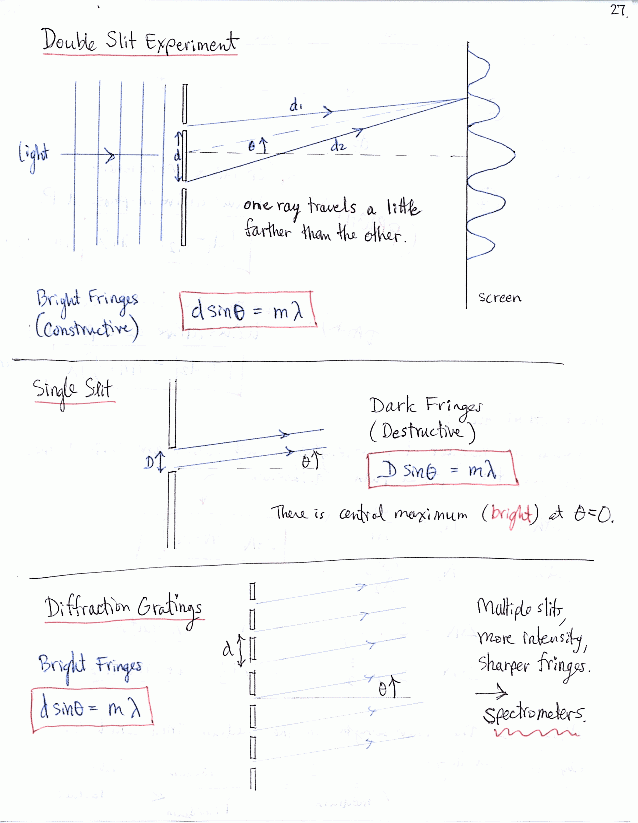 27
Double Slit Experiment
Light
d
θ
d1
d2
one ray travels a little
farther than the other.
Bright Fringes
(Constructive)
d sinθ = mλ
screen
Single Slit
D
θ
Dark Fringes
(Destructive)
D sinθ = mλ
There is central maximum (bright) at θ=0.
Diffraction Gratings
Bright Fringes
d sinθ = mλ
d
θ
Multiple slits,
more intensity,
sharper fringes.
→
Spectrometers.